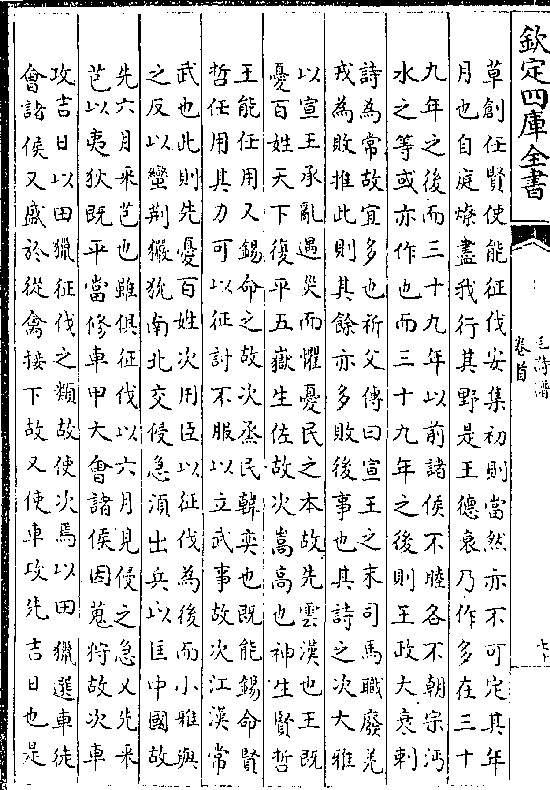 欽定四庫全書
毛詩譜
卷首
草創任賢使能征伐安集初則當然亦不可定其年
月也自庭燎盡我行其野是王德衰乃作多在三十
九年之後而三十九年以前諸侯不睦各不朝宗沔
水之等或亦作也而三十九年之後則王政大衰刺
詩為常故宜多也祈父傳曰宣王之末司馬職廢羌
戎為敗推此則其餘亦多敗後事也其詩之次大雅
以宣王承亂遇災而懼憂民之本故先雲漢也王既
憂百姓天下復平五嶽生佐故次嵩高也神生賢哲
王能任用又錫命之故次烝民韓奕也既能錫命賢
哲任用其力可以征討不服以立武事故次江漢常
武也此則先憂百姓次用臣以征伐為後而小雅與
之反以蠻荆玁狁南北交侵急須出兵以匡中國故
先六月采芑也雖俱征伐以六月見侵之急又先采
芑以夷狄既平當修車甲大會諸侯因蒐狩故次車
攻吉日以田獵征伐之類故使次焉以田獵選車徒
會諸侯又盛於從禽接下故又使車攻先吉日也是